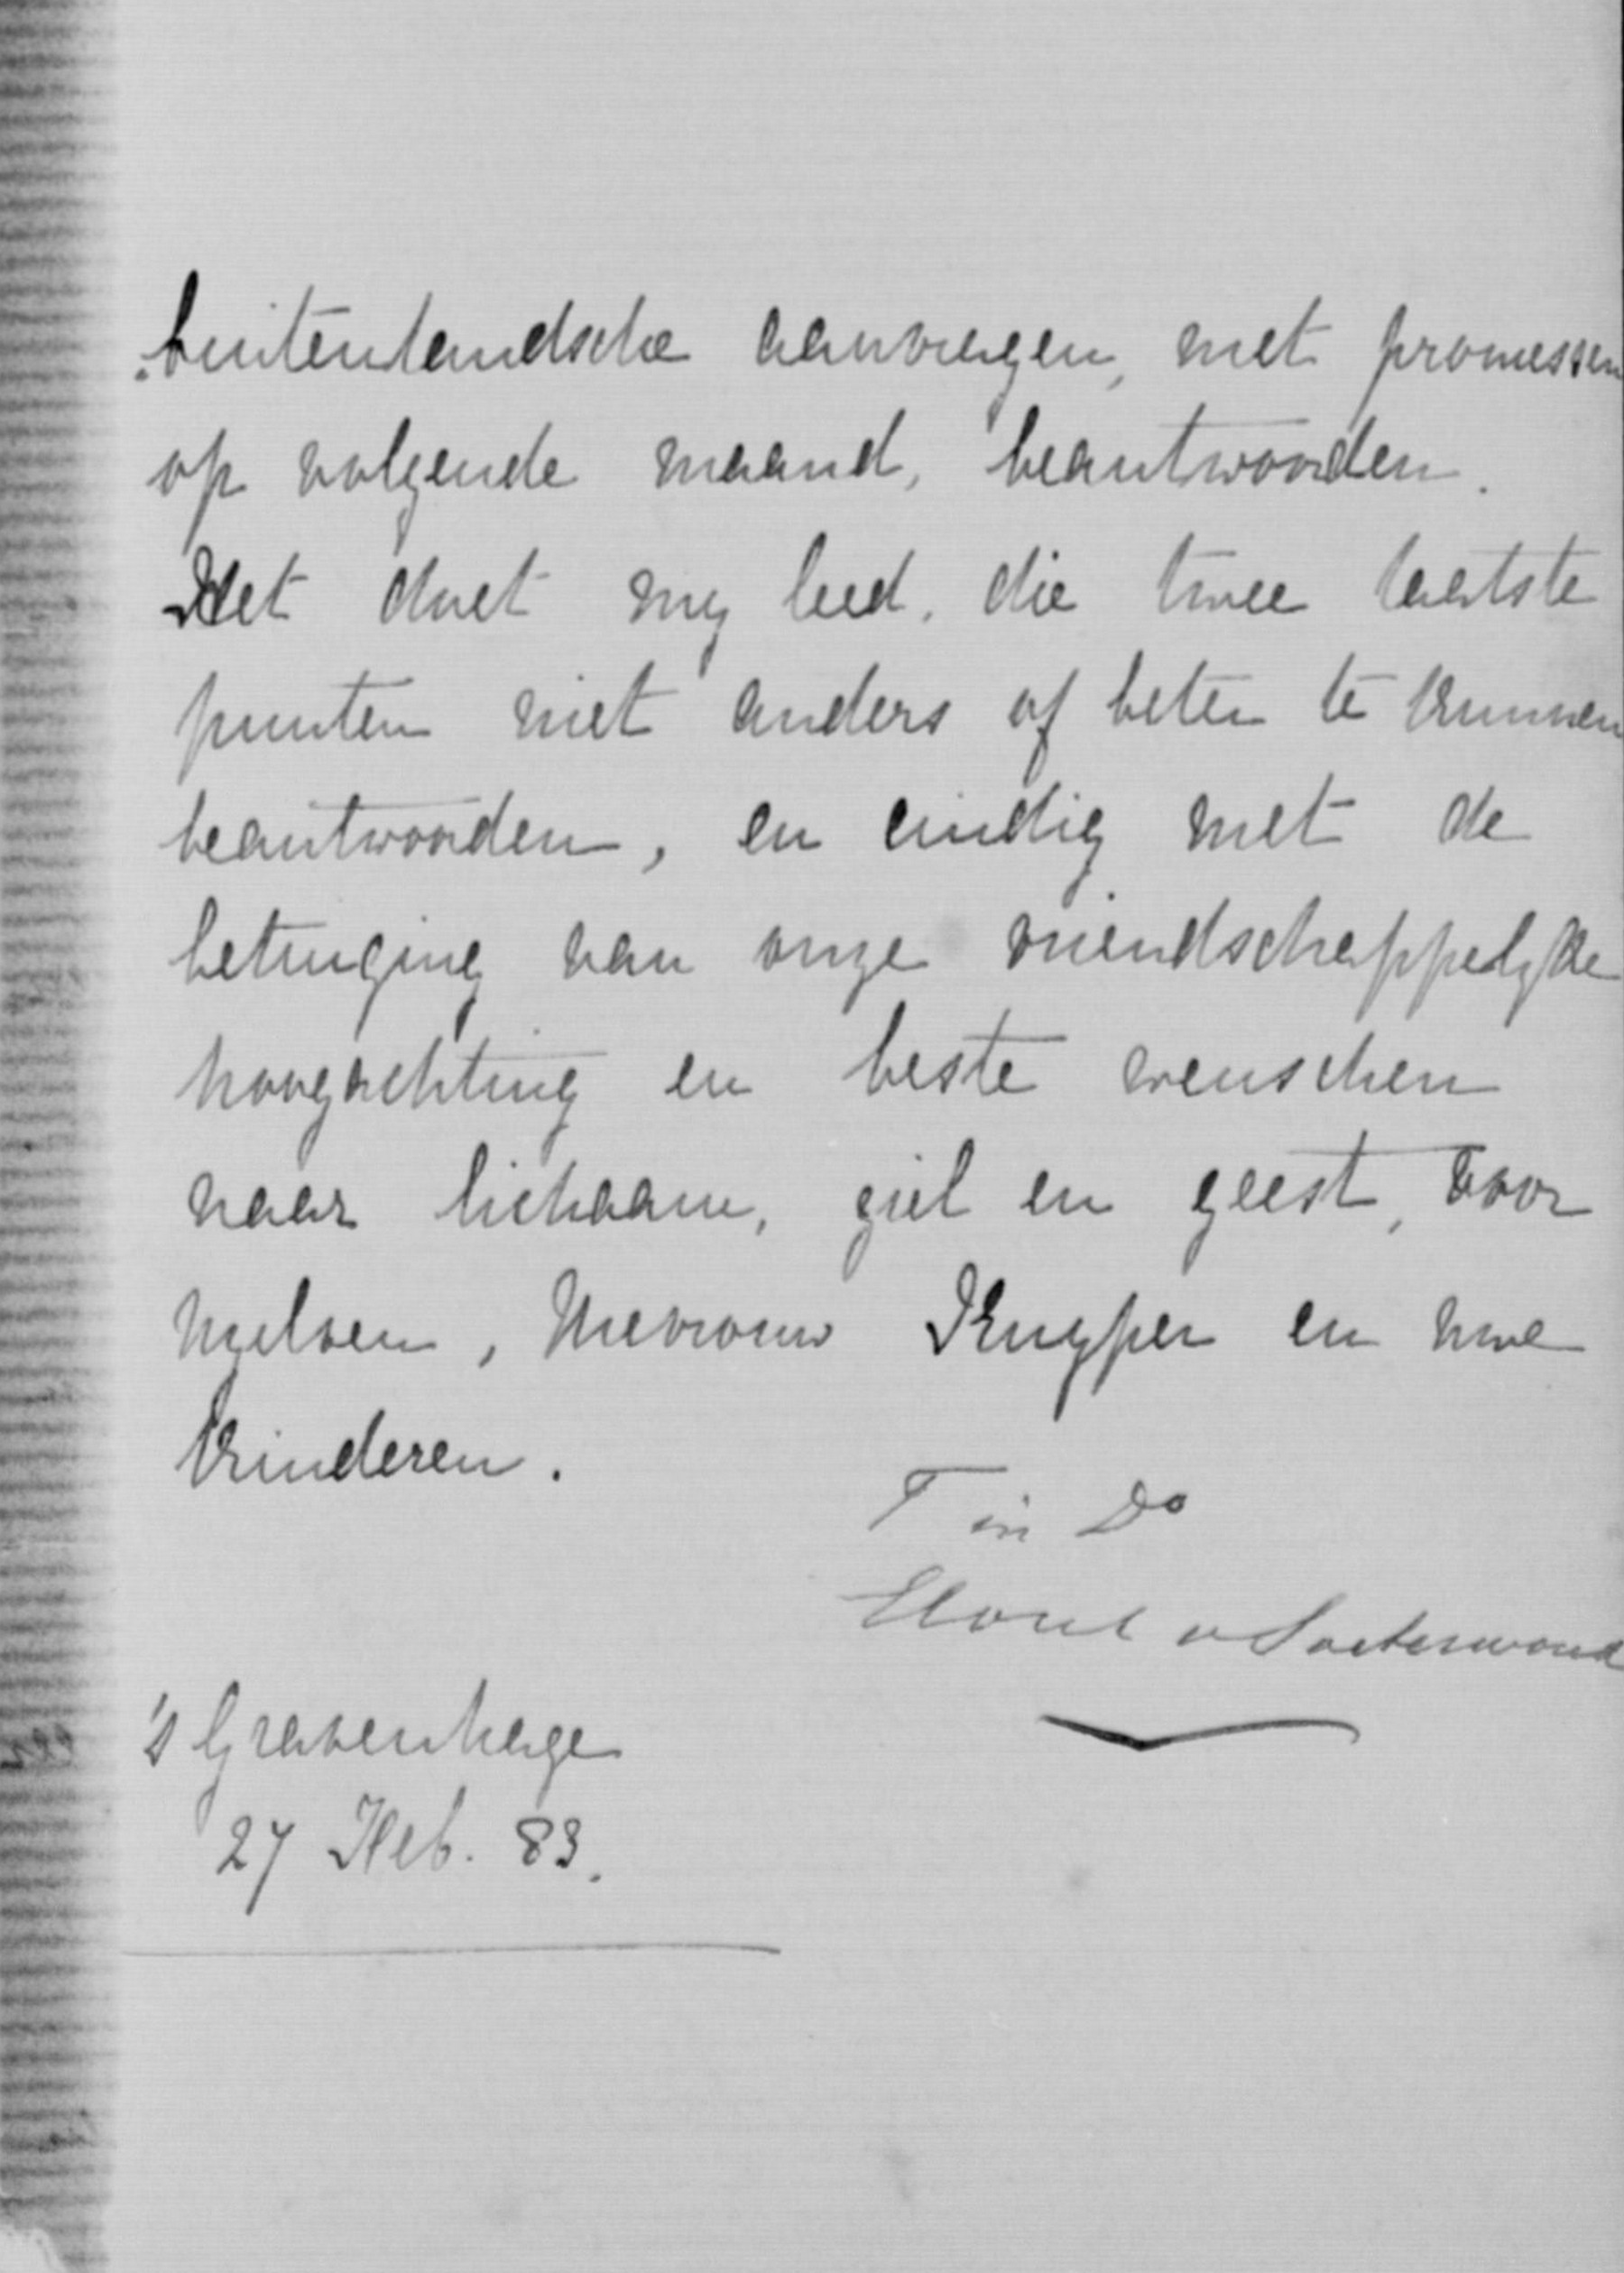 buitenlandsche aanvragen, met promessen
op volgende maand, beantwoorden.
Het doet my leed, die twee laatste
punten niet anders of beter te kunnen
beantwoorden, en eindig met de
betuiging van onze vriendschappelyke
hoogachting en beste wenschen
naar lichaam, ziel en geest, voor
Uzelven, Mevrouw Kuyper en uwe
kinderen.
T in Do
Elout v Soeterwoude
's Gravenhage
27 Feb. 83.